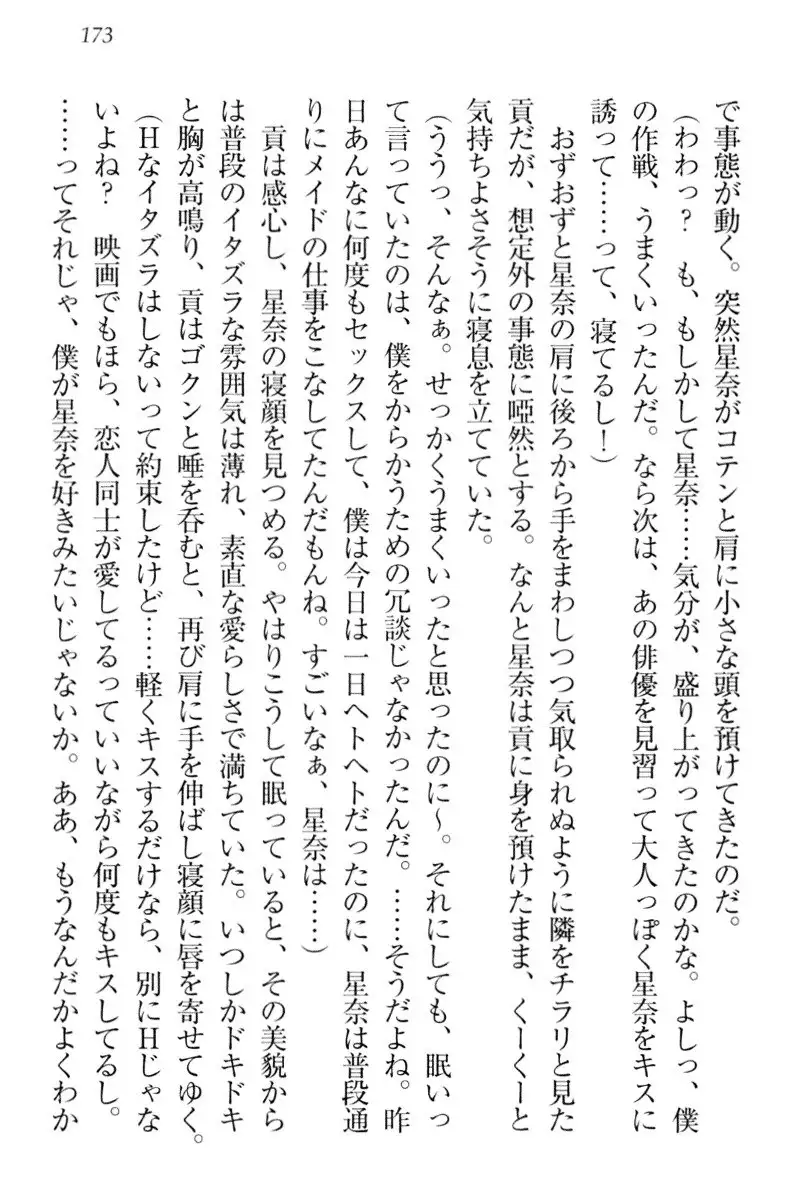 173
で事態が動く。突然星奈がコテンと肩に小さな頭を預けてきたのだ。
(わわっ？　も、もしかして星奈……気分が、盛り上がってきたのかな。よしっ、僕
の作戦、うまくいったんだ。なら次は、あの俳優を見習って大人っぽく星奈をキスに
誘って……って、寝てるし！)
おずおずと星奈の肩に後ろから手をまわしつつ気取られぬように隣をチラリと見た
貢だが、想定外の事態に啞然とする。なんと星奈は貢に身を預けたまま、くーくーと
気持ちよさそうに寝息を立てていた。
(ううっ、そんなぁ。せっかくうまくいったと思ったのに〜。それにしても、眠いっ
て言っていたのは、僕をからかうための冗談じゃなかったんだ。……そうだよね。昨
日あんなに何度もセックスして、僕は今日は一日ヘトヘトだったのに、星奈は普段通
りにメイドの仕事をこなしてたんだもんね。すごいなぁ、星奈は……)
貢は感心し、星奈の寝顔を見つめる。やはりこうして眠っていると、その美貌から
は普段のイタズラな雰囲気は薄れ、素直な愛らしさで満ちていた。いつしかドキドキ
と胸が高鳴り、貢はゴクンと唾を呑むと、再び肩に手を伸ばし寝顔に唇を寄せてゆく。
(Ｈなイタズラはしないって約束したけど……軽くキスするだけなら、別にＨじゃな
いよね？　映画でもほら、恋人同士が愛してるっていいながら何度もキスしてるし。
……ってそれじゃ、僕が星奈を好きみたいじゃないか。ああ、もうなんだかよくわか